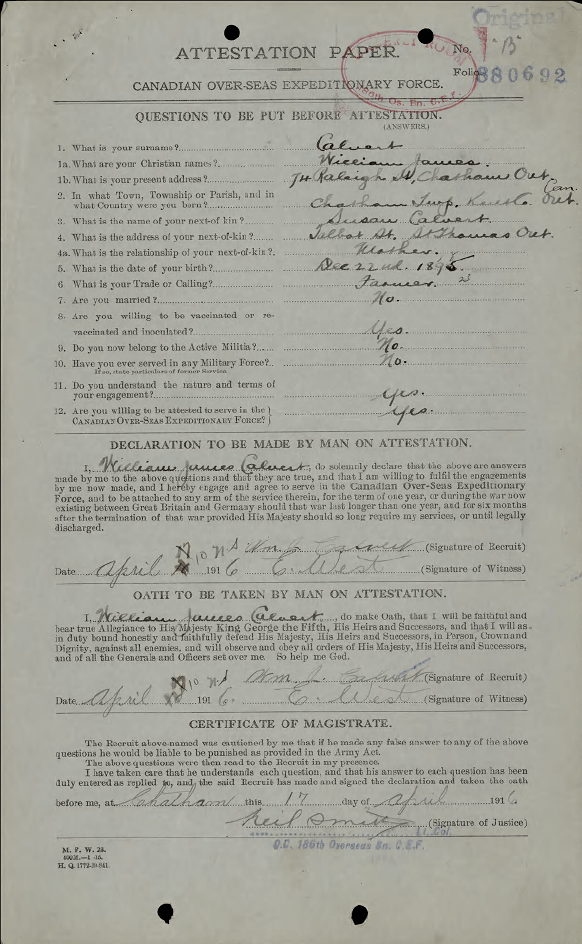 Original
ATTESTATION PAPER.
No.
"B"
Folio.
880692
186th Os. Bn. C.E.F.
CANADIAN OVER-SEAS EXPEDITIONARY FORCE.
QUESTIONS TO BE PUT BEFORE ATTESTATION.
(ANSWERS.)
1. What is your surname? Calvert
1a. What are your Christian names? William James.
1b. What is your present address? 74 Raleigh St, Chatham Ont.
2. In what Town, Township or Parish, and in
what Country were you born? Chatham Twp. Kent Co. Ont. Can.
3. What is the name of your next-of-kin? Susan Calvert.
4. What is the address of your next-of-kin? Talbot St. St Thomas Ont.
4a. What is the relationship of your next-of-kin? Mother.
5. What is the date of your birth? Dec 22nd. 1895.
6. What is your Trade or Calling? Farmer.
7. Are you married? No.
8. Are you willing to be vaccinated or re-
vaccinated and inoculated? Yes.
9. Do you now belong to the Active Militia? No.
10. Have you ever served in any Military Force? No.
If so, state particulars of former Service
11. Do you understand the nature and terms of
your engagement? Yes.
12. Are you willing to be attested to serve in the
CANADIAN OVER-SEAS EXPEDITIONARY FORCE? Yes.
DECLARATION TO BE MADE BY MAN ON ATTESTATION.
I, William James Calvert, do solemnly declare that the above are answers
made by me to the above questions and that they are true, and that I am willing to fulfil the engagements
by me now made, and I hereby engage and agree to serve in the Canadian Over-Seas Expeditionary
Force, and to be attached to any arm of the service therein, for the term of one year, or during the war now
existing between Great Britain and Germany should that war last longer than one year, and for six months
after the termination of that war provided His Majesty should so long require my services, or until legally
discharged.
Wm J. Calvert (Signature of Recruit)
Date April 191 6 E. West (Signature of Witness)
OATH TO BE TAKEN BY MAN ON ATTESTATION.
I, William James Calvert, do make Oath, that I will be faithful and
bear true Allegiance to His Majesty King George the Fifth, His Heirs and Successors, and that I will as
in duty bound honestly and faithfully defend His Majesty, His Heirs and Successors, in Person, Crown and
Dignity, against all enemies, and will observe and obey all orders of His Majesty, His Heirs and Successors,
and of all the Generals and Officers set over me. So help me God.
Wm J. Calvert (Signature of Recruit)
Date April 191 6. E. West (Signature of Witness)
CERTIFICATE OF MAGISTRATE.
The Recruit above-named was cautioned by me that if he made any false answer to any of the above
questions he would be liable to be punished as provided in the Army Act.
The above questions were then read to the Recruit in my presence.
I have taken care that he understands each question, and that his answer to each question has been
duly entered as replied to, and the said Recruit has made and signed the declaration and taken the oath
before me, at Chatham this 17 day of April 191 6
Neil Smith (Signature of Justice)
Lt. Col.
O.C. 186th Overseas Bn. C.E.F.
M. F. W. 23.
H. Q. 1772-39-841.